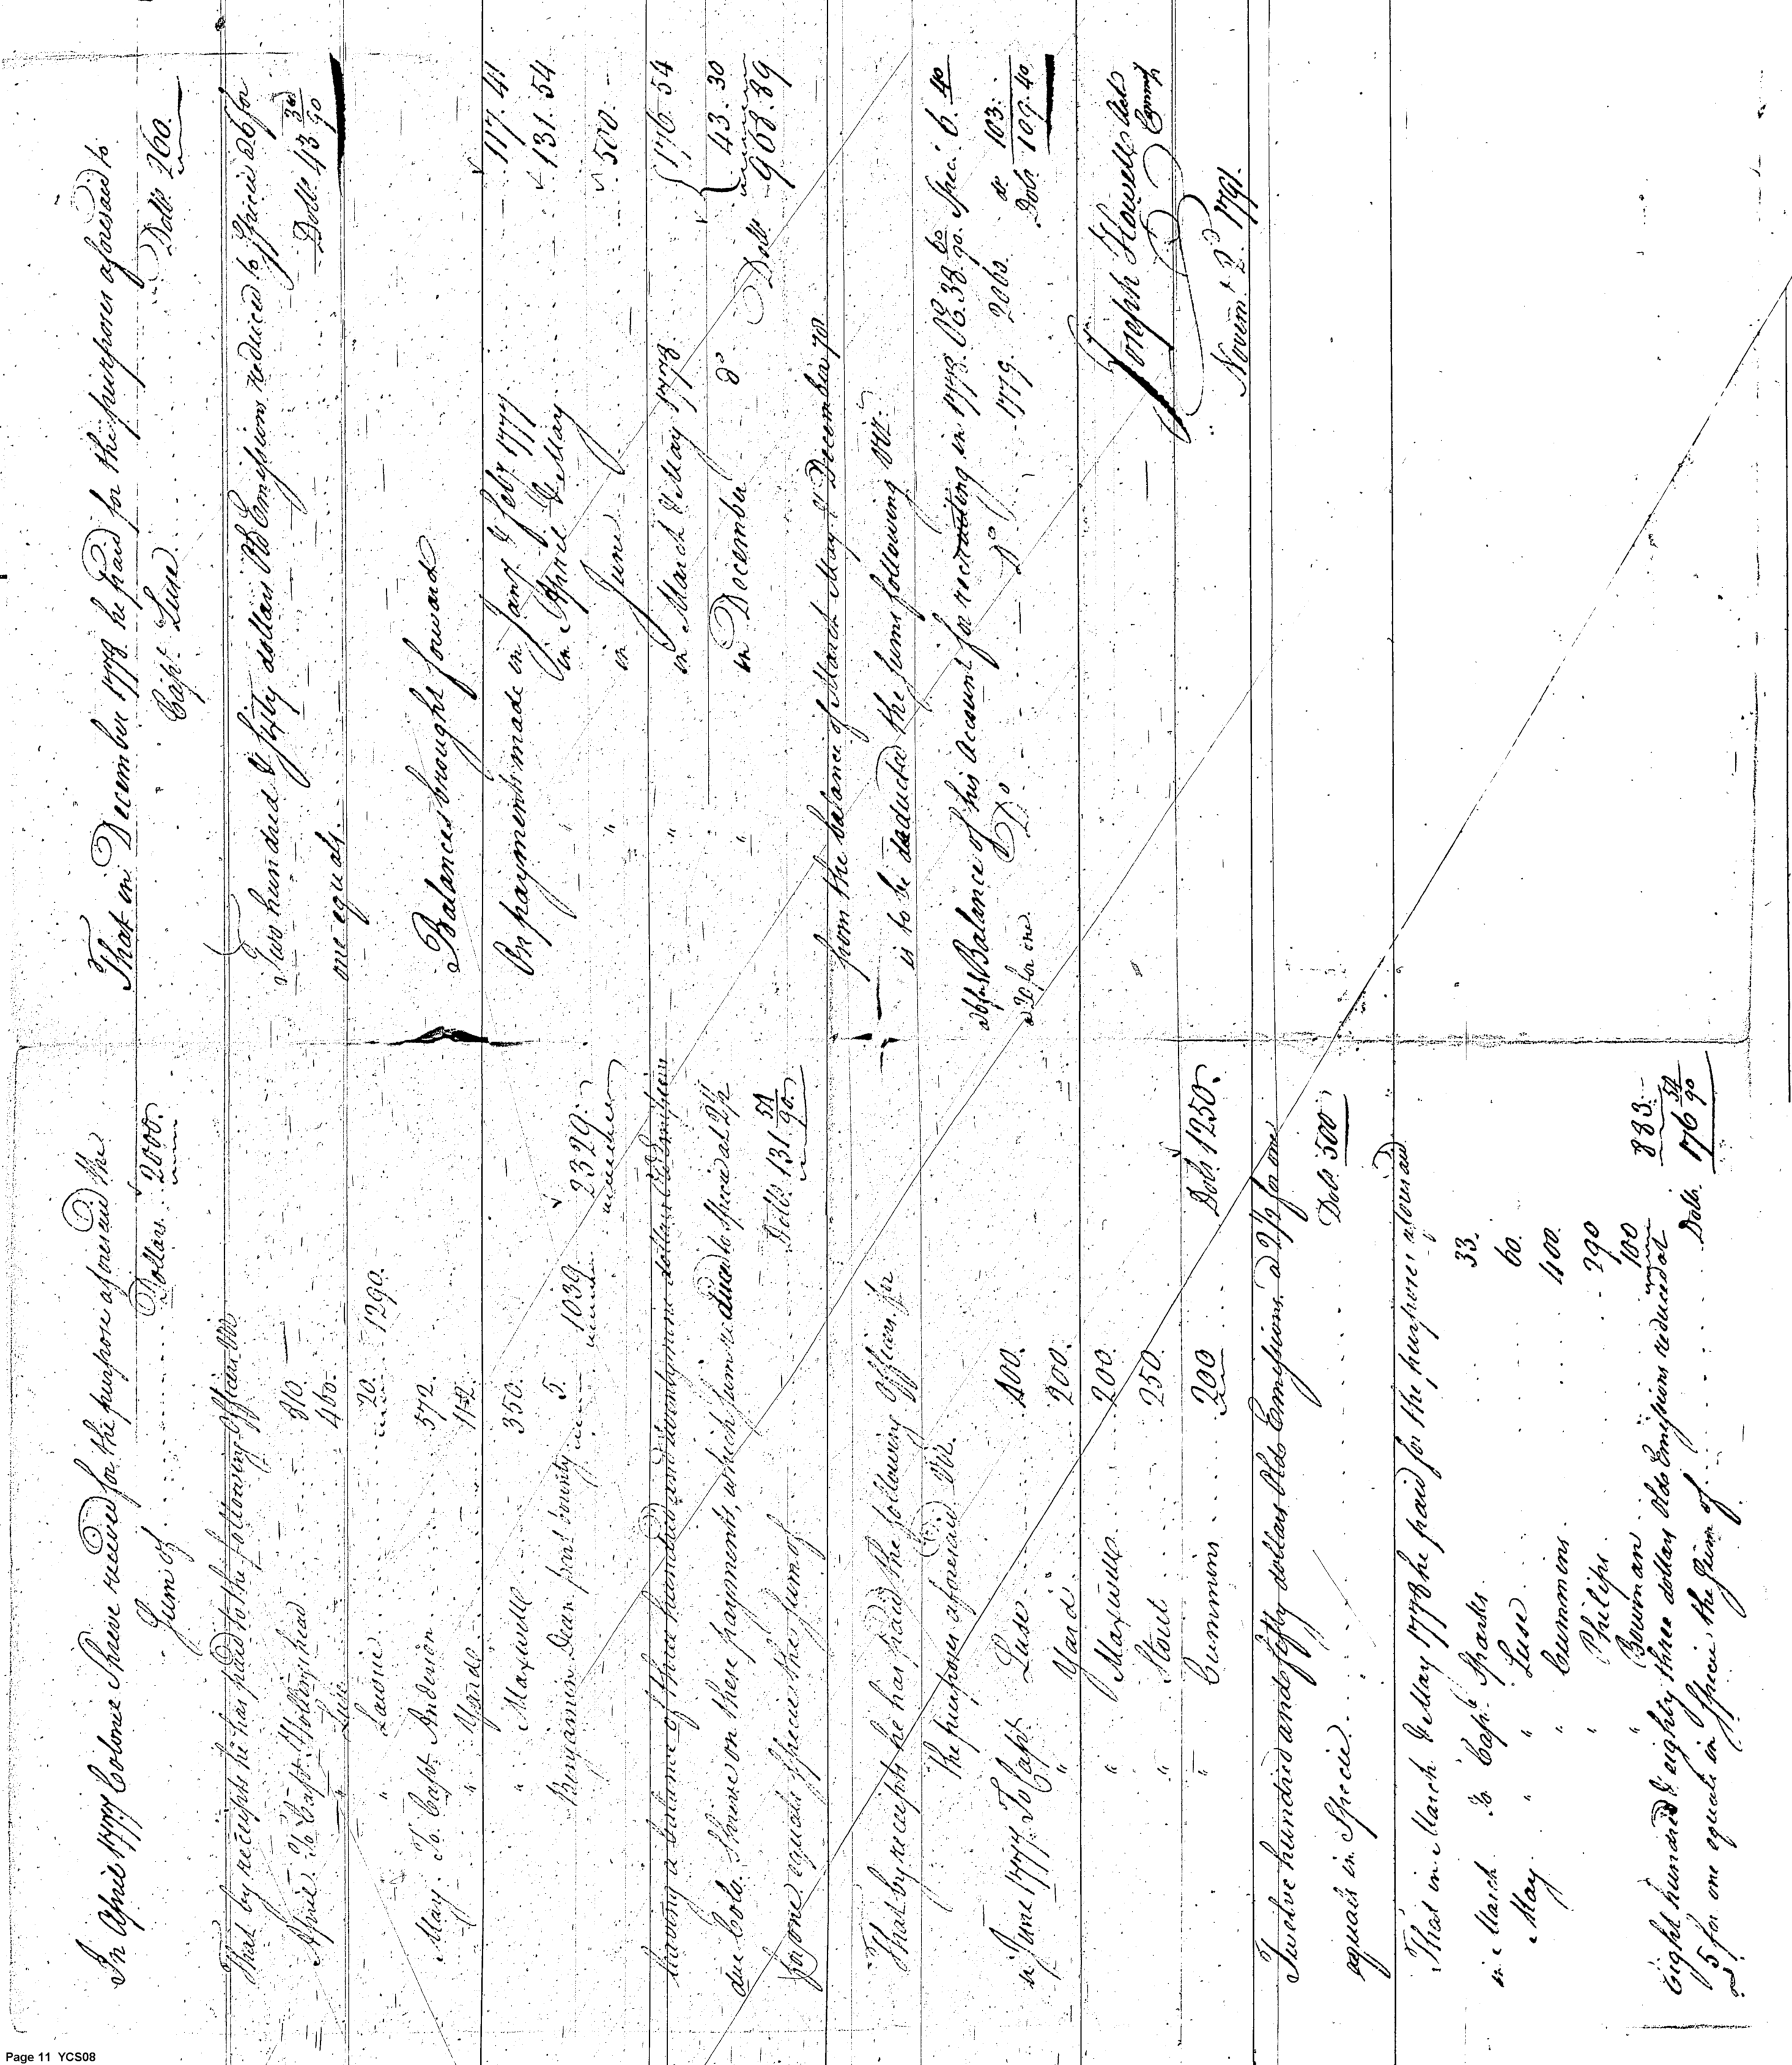 In April 1777 Colonel Shreve received for the purpose aforesaid the
Sum of Dollars 2000.
That by receipts he has paid to the following Officers Viz
April To Capt Hollinshead 310.
" Luse 460.
" Lawrie 20. 1290.
May To Capt Anderson 572.
" Yard 112.
" Maxwell 350.
Benjamin Dean part bounty 5. 1039 2329.
leaving a balance of three hundred and twentynine dollars Old Emissions
due Colo. Shreve on these payments, which sum reduced to Specie at 2½
for one equals Specie the sum of Dolls. 131 54/90
That by receipts he has paid the following Officers for
the purposes aforesaid Viz.
in June 1777 To Capt Luse 400.
" Yard 200.
" Maxwell 200.
" Stout 250.
" Cummins 200 Dols. 1250.
Twelve hundred and fifty dollars Old Emissions a 2½ for one
equals in Specie Dols 500
That in March & May 1778 he paid for the purpose aforesaid
in March To Capt. Sparks 33.
May " Luse 60.
" Cummins 400.
" Philips 290
" Bowman 100 883.
Eight hundred & eighty three dollars Old Emissions reduced at
5 for one equals in Specie the Sum of Dolls. 176 54/90
That in December 1778 he paid for the purposes aforesaid to
Capt. Luse Dolls 260.
Two hundred & fifty dollars Old Emissions reduced to Specie a 6 for
one equals Dolls 43 30/90
Balances brought forward
On payments made in Jany & Feby 1777 117. 41
" in April & May 131. 54
" in June 500. -
" in March & May 1778 176. 54
" in December do 43. 30
Dolls 968. 89
from the balance of March May & December 78
is to be deducted the sums following viz.
Balance of his Account for recruiting in 1778 OE. 38 60/90 Speci. 6. 40
Do Do 1779 2060. do 103.
a 20 for one Dols. 109. 40
Joseph Howell
Novem. 2d. 1791.
Page 11 YCS08